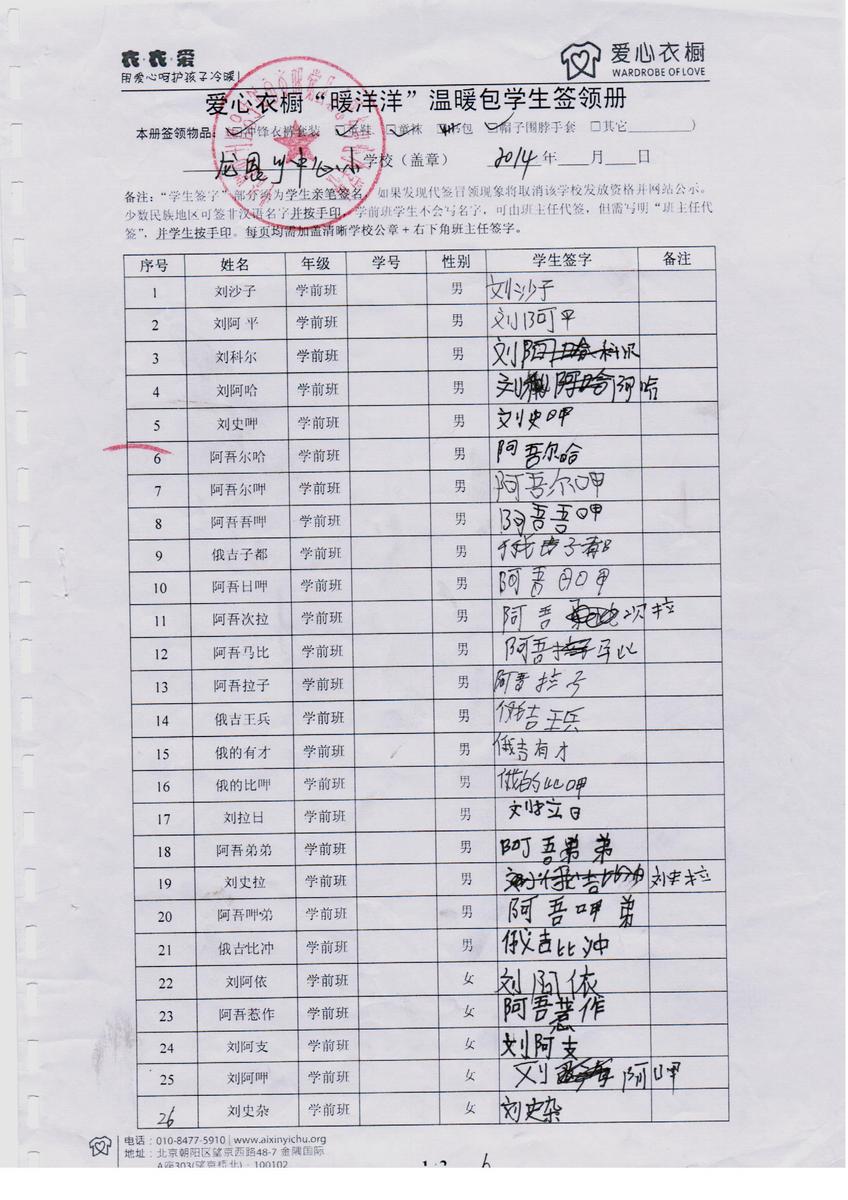 衣·衣·爱
用爱心呵护孩子冷暖!
爱心衣橱
WARDROBE OF LOVE
爱心衣橱“暖洋洋”温暖包学生签领册
本册签领物品：☑冲锋衣裤套装 ☑童鞋 ☑童袜 ☑书包 ☑帽子围脖手套 □其它________）
中心小 学校（盖章） 2014年____月____日
备注：“学生签字”部分须为学生亲笔签名，如果发现代签冒领现象将取消该学校发放资格并网站公示。
少数民族地区可签非汉语名字并按手印，学前班学生不会写名字，可由班主任代签，但需写明“班主任代
签”，并学生按手印。每页均需加盖清晰学校公章+右下角班主任签字。
序号 姓名 年级 学号 性别 学生签字 备注
1 刘沙子 学前班 男 刘沙子
2 刘阿平 学前班 男 刘阿平
3 刘科尔 学前班 男 刘阿哈科尔
4 刘阿哈 学前班 男 刘阿哈阿哈
5 刘史呷 学前班 男 刘史呷
6 阿吾尔哈 学前班 男 阿吾尔哈
7 阿吾尔呷 学前班 男 阿吾尔呷
8 阿吾吾呷 学前班 男 阿吾吾呷
9 俄吉子都 学前班 男 俄吉子都
10 阿吾日呷 学前班 男 阿吾日呷
11 阿吾次拉 学前班 男 阿吾次拉
12 阿吾马比 学前班 男 阿吾马比
13 阿吾拉子 学前班 男 阿吾拉子
14 俄吉王兵 学前班 男 俄吉王兵
15 俄的有才 学前班 男 俄吉有才
16 俄的比呷 学前班 男 俄的比呷
17 刘拉日 学前班 男 刘拉日
18 阿吾弟弟 学前班 男 阿吾弟弟
19 刘史拉 学前班 男 刘史拉
20 阿吾呷弟 学前班 男 阿吾呷弟
21 俄吉比冲 学前班 男 俄吉比冲
22 刘阿依 学前班 女 刘阿依
23 阿吾惹作 学前班 女 阿吾惹作
24 刘阿支 学前班 女 刘阿支
25 刘阿呷 学前班 女 刘阿呷
26 刘史杂 学前班 女 刘史杂
电话：010-8477-5910 | www.aixinyichu.org
地址：北京朝阳区望京西路48-7 金隅国际
A座303(望京桥北)·100102